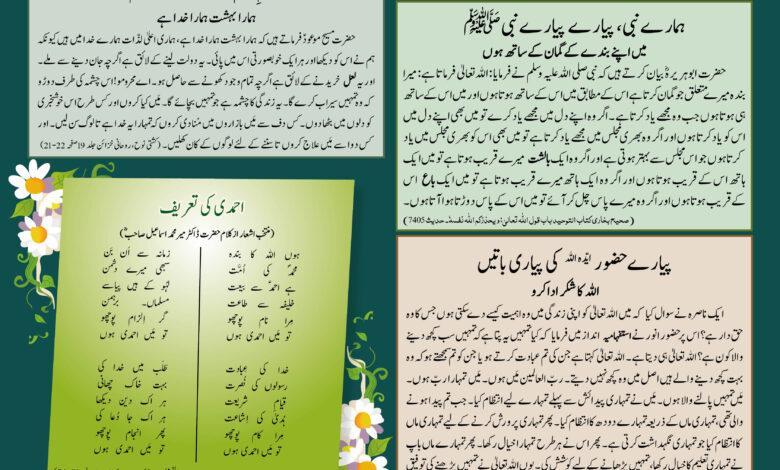 ہمارے نبی، پیارے پیارے نبی ﷺ
میں اپنے بندے کے گمان کے ساتھ ہوں
حضرت ابوہریرہؓ بیان کرتے ہیں کہ نبی صلی اللہ علیہ وسلم نے فرمایا: اللہ تعالیٰ فرماتا ہے: میرا
بندہ میرے متعلق جو گمان کرتا ہے اس کے مطابق میں اس کے ساتھ ہوتا ہوں اور میں اس کے ساتھ
ہوتا ہوں جب وہ مجھے یاد کرتا ہے۔ اگر وہ اپنے دل میں مجھے یاد کرے تو میں بھی اپنے دل میں
اس کو یاد کرتا ہوں اور اگر وہ بھری مجلس میں مجھے یاد کرتا ہے تو میں بھی اس کو بھری مجلس میں یاد
کرتا ہوں جو اس مجلس سے بہتر ہوتی ہے اور اگر وہ ایک بالشت میرے قریب ہوتا ہے تو میں ایک
ہاتھ اس کے قریب ہوتا ہوں اور اگر وہ ایک ہاتھ میرے قریب ہوتا ہے تو میں ایک باع اس
کے قریب ہوتا ہوں اور اگر وہ میرے پاس چل کر آئے تو میں اس کے پاس دوڑتا ہوا آتا ہوں۔
(صحیح بخاری کتاب التوحید باب قول اللہ تعالیٰ: ویحذرکم اللہ نفسہ۔ حدیث 7405)
ہمارا بہشت ہمارا خدا ہے
حضرت مسیح موعودؑ فرماتے ہیں کہ ہمارا بہشت ہمارا خدا ہے، ہماری اعلیٰ لذات ہمارے خدا میں ہیں کیونکہ
ہم نے اس کو دیکھا اور ہر ایک خوبصورتی اس میں پائی۔ یہ دولت لینے کے لائق ہے اگرچہ جان دینے سے ملے۔
اور یہ لعل خریدنے کے لائق ہے اگرچہ تمام وجود کھونے سے حاصل ہو۔ اے محرومو! اس چشمہ کی طرف دوڑو
کہ وہ تمہیں سیراب کرے گا۔ یہ زندگی کا چشمہ ہے جو تمہیں بچائے گا۔ میں کیا کروں اور کس طرح اس خوشخبری
کو دلوں میں بٹھا دوں۔ کس دف سے میں بازاروں میں منادی کروں کہ تمہارا یہ خدا ہے تا لوگ سن لیں۔ اور
کس دوا سے میں علاج کروں تا سننے کے لئے لوگوں کے کان کھلیں۔ (کشتی نوح، روحانی خزائن جلد 19 صفحہ 22-21)
احمدی کی تعریف
(منتخب اشعار از کلام حضرت ڈاکٹر میر محمد اسماعیل صاحبؓ)
ہوں اللہ کا بندہ
محمدؐ کی اُمّت
ہے احمدؑ سے بیعت
خلیفہ سے طاعت
مِرا نام پوچھو
تو مَیں احمدی ہوں
زمانہ سے اَن بَن
سبھی میرے دشمن
لہو کے ہیں پیاسے
مسلماں، برہمن
گر اِلزام پوچھو
تو مَیں احمدی ہوں
خدا کی عِبادت
رسولوں کی نُصرت
قیامِ شریعت
ہدیٰ کی اِشاعت
مِرا کام پوچھو
تو مَیں احمدی ہوں
طلَب میں خدا کی
بہت خاک چھانی
ہر اک دین دیکھا
ہر اک جا دُعا کی
پھر انجام پوچھو
تو مَیں احمدی ہوں
پیارے حضور ایدہ اللہ کی پیاری باتیں
اللہ کا شکر ادا کرو
ایک ناصرہ نے سوال کیا کہ میں اللہ تعالیٰ کو اپنی زندگی میں وہ اہمیت کیسے دے سکتی ہوں جس کا وہ
حق دار ہے؟ اس پر حضور انور نے استفہامیہ انداز میں فرمایا کہ کیا تمہیں یہ پتا ہے کہ تمہیں سب کچھ دینے
والا کون ہے؟ اللہ تعالیٰ ہی دیتا ہے۔ اللہ تعالیٰ کہتا ہے جن کی تم عبادت کرتے ہو یا جن کو تم سمجھتے ہو کہ وہ
بہت کچھ دینے والے ہیں اصل میں وہ کچھ نہیں دیتے۔ ربّ العالمین میں ہوں۔ میں تمہارا ربّ ہوں۔
میں تمہیں پالنے والا ہوں۔ میں نے تمہاری پیدائش سے پہلے تمہارے لیے انتظام کیا۔ جب تم پیدا ہونے
والی تھی، تمہاری ماں کے ذریعہ تمہارے دودھ کا انتظام کیا۔ پھر تمہاری پرورش کرنے کے لیے تمہاری ماں
کا انتظام کیا جو تمہاری نگہداشت کرتی ہے۔ پھر اس نے ہر طرح تمہارا خیال رکھا۔ پھر تمہارے ماں باپ
نے تمہاری تعلیم کا خیال رکھا، تمہیں پڑھانے کے لیے کوشش کی۔ یوں اللہ تعالیٰ نے تمہیں پڑھنے کی توفیق